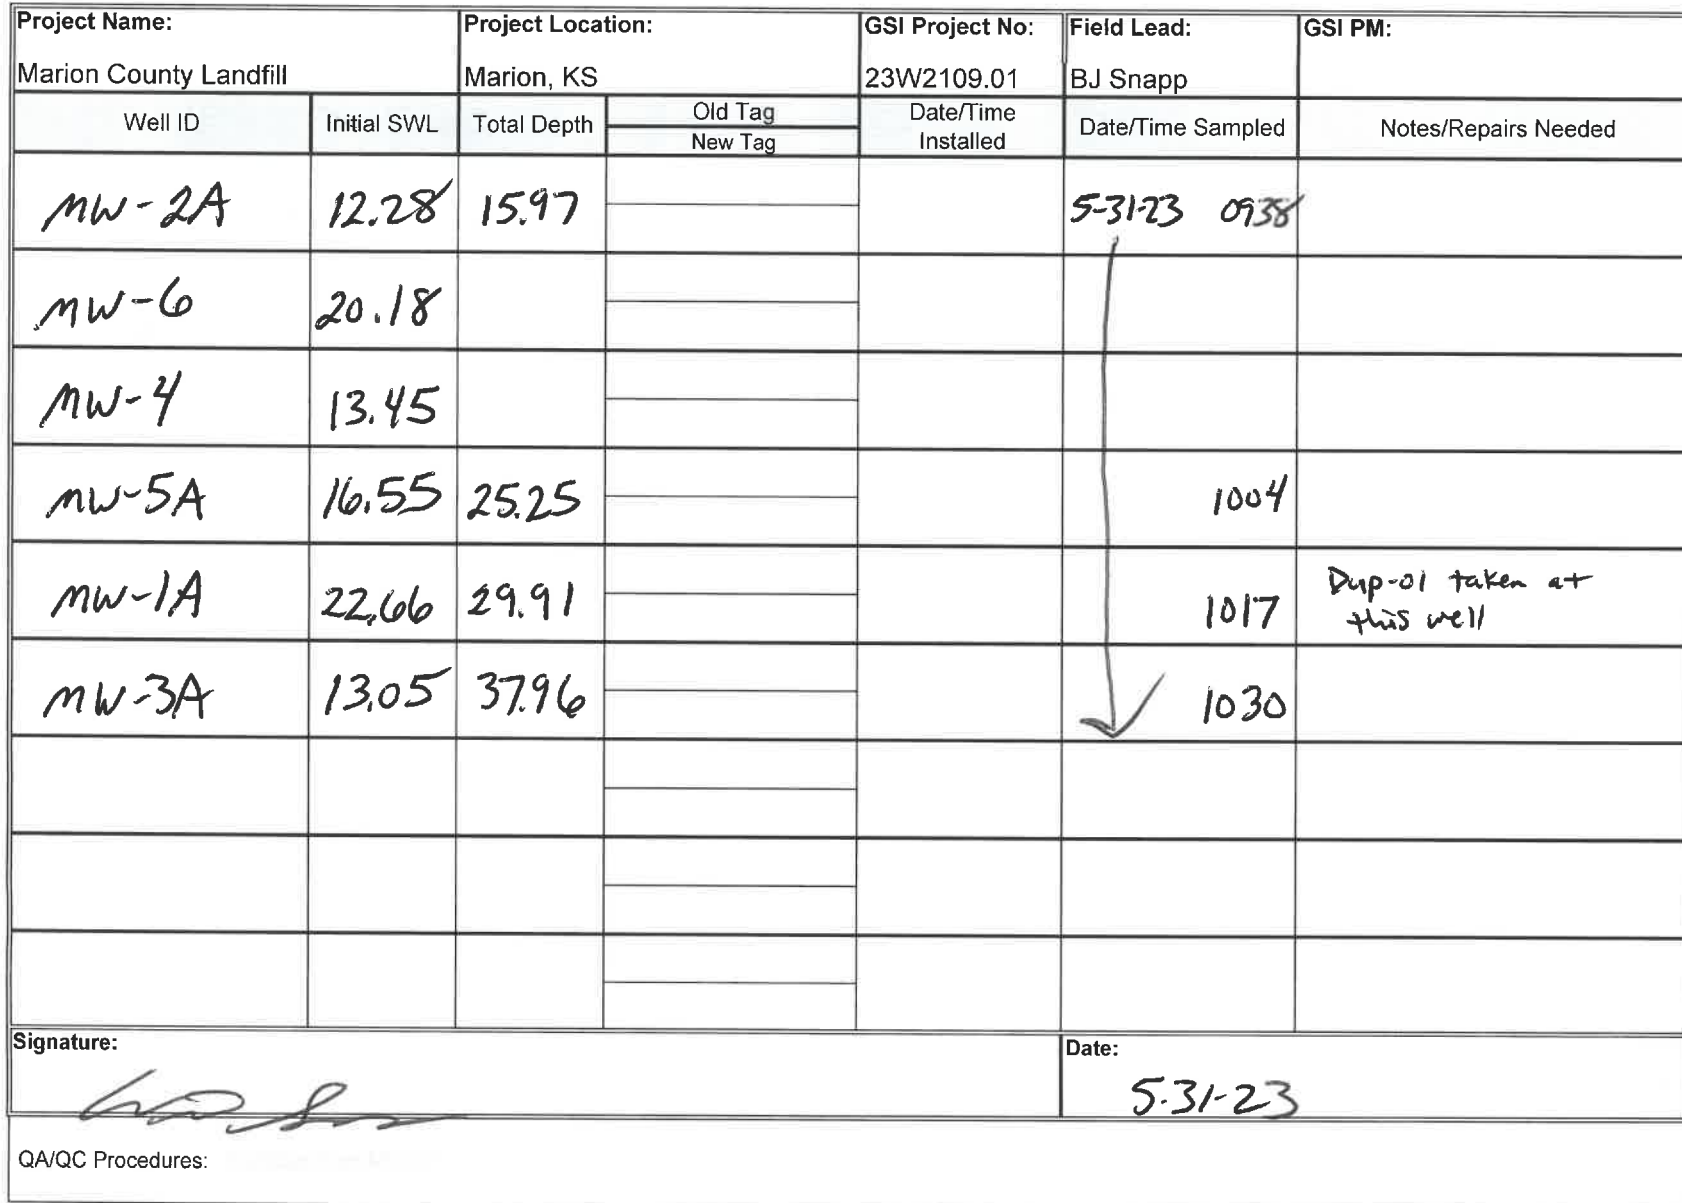 Project Name: Project Location: GSI Project No: Field Lead: GSI PM:
Marion County Landfill Marion, KS 23W2109.01 BJ Snapp
Well ID Initial SWL Total Depth Old Tag New Tag Date/Time Installed Date/Time Sampled Notes/Repairs Needed
MW-2A 12.28 15.97 5-31-23 0938
MW-6 20.18
MW-4 13.45
MW-5A 16.55 25.25 1004
MW-1A 22.66 29.91 1017 Dup-01 taken at
this well
MW-3A 13.05 37.96 1030
Signature: Date:
5-31-23
QA/QC Procedures: